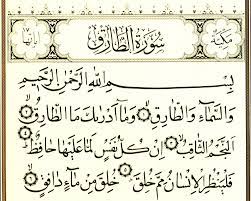 مكية سُورَةُ الطَّارِقِ آياتها
بِسْمِ اللَّهِ الرَّحْمَٰنِ الرَّحِيمِ
وَالسَّمَاءِ وَالطَّارِقِ وَمَا أَدْرَىٰكَ مَا الطَّارِقُ
النَّجْمُ الثَّاقِبُ إِنْ كُلُّ نَفْسٍ لَمَّا عَلَيْهَا حَافِظٌ
فَلْيَنْظُرِ الْإِنْسَانُ مِمَّ خُلِقَ خُلِقَ مِنْ مَاءٍ دَافِقٍ